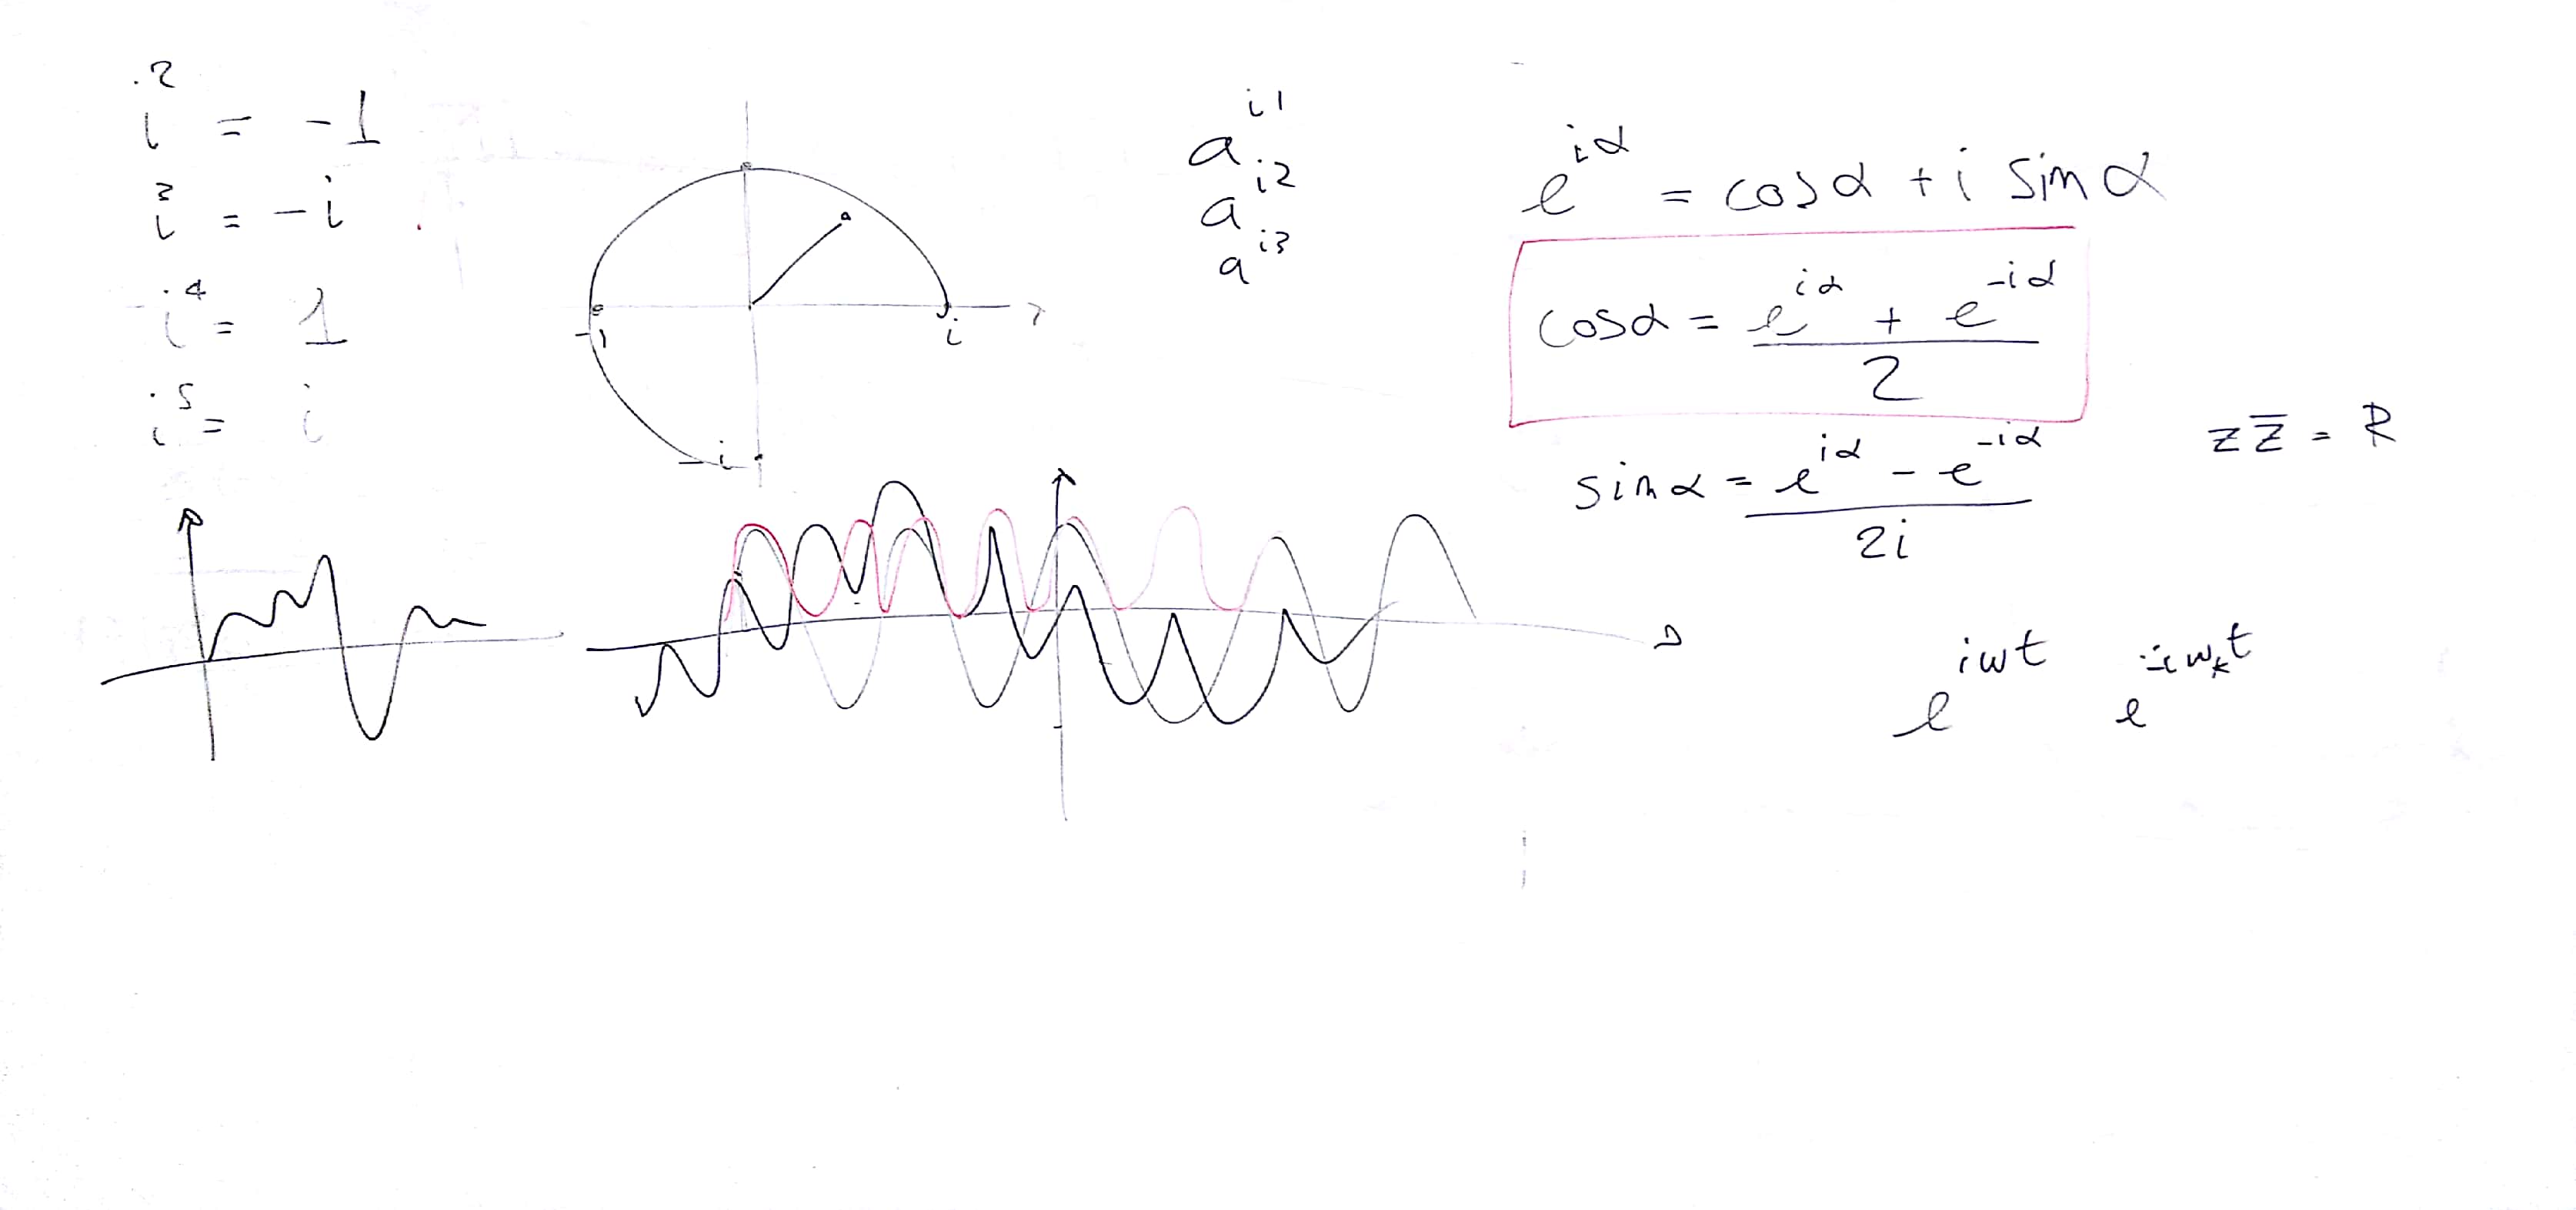 i² = -1
i³ = -i
i⁴ = 1
i⁵ = i
-1
i
-i
a^{i1}
a^{i2}
a^{i3}
e^{iα} = cosα + i sinα
cosα = \frac{e^{iα} + e^{-iα}}{2}
sinα = \frac{e^{iα} - e^{-iα}}{2i}
z z̅ = R
e^{iωt} e^{-iω_k t}